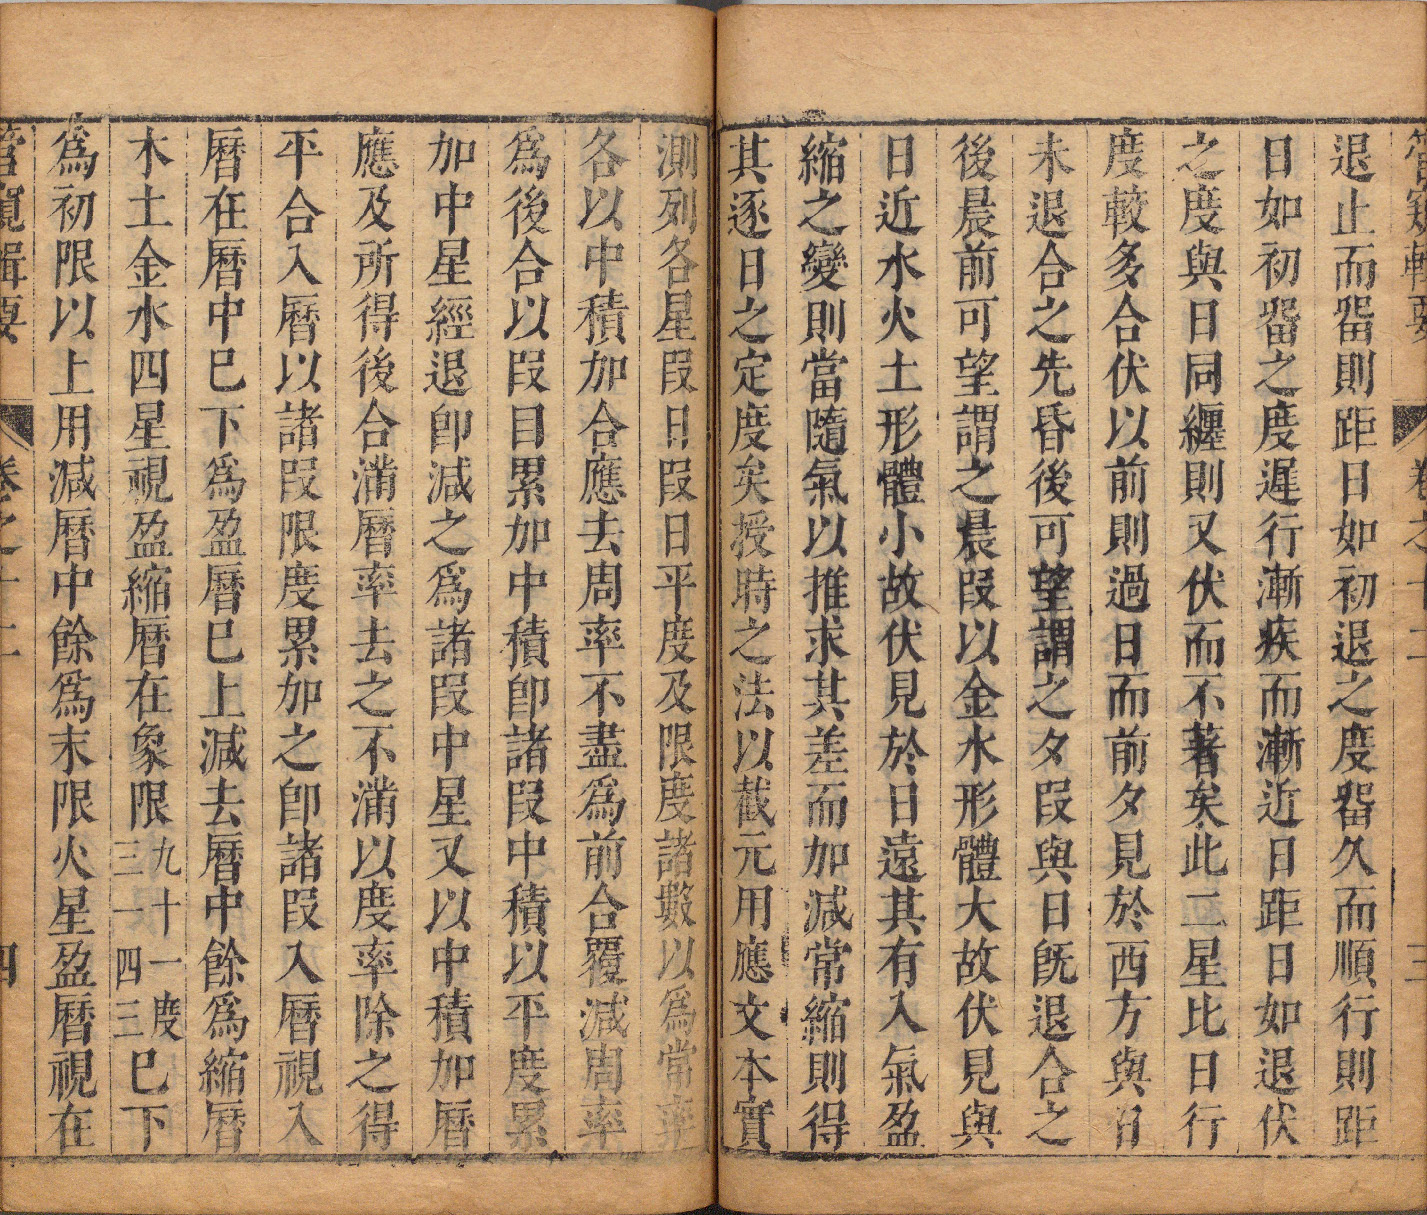 管窺輯要 卷之十二 三
退止而畱則距日如初退之度畱久而順行則距
日如初畱之度遲行漸疾而漸近日距日如退伏
之度與日同纏則又伏而不著矣此二星比日行
度較多合伏以前則過日而前夕見於西方與日
未退合之先昏後可望謂之夕段與日旣退合之
後晨前可望謂之晨段以金水形體大故伏見與
日近水火土形體小故伏見於日遠其有入氣盈
縮之變則當隨氣以推求其差而加減常縮則得
其逐日之定度矣授時之法以截元用應文本實
測列各星段日段日平度及限度諸數以為常率
各以中積加合應去周率不盡為前合覆減周率
爲後合以段目累加中積卽諸段中積以平度累
加中星經退卽減之爲諸段中星又以中積加曆
應及所得後合滿曆率去之不滿以度率除之得
平合入曆以諸段限度累加之卽諸段入曆視入
曆在曆中巳下爲盈曆巳上減去曆中餘爲縮曆
木土金水四星視盈縮曆在象限九十一度三一四三巳下
爲初限以上用減曆中餘爲末限火星盈曆視在
管窺輯要 卷之十二 四